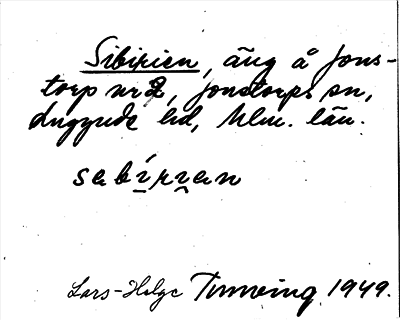 Sibirien, äng å Jons-
torp nr 2, Jonstorps sn,
Luggude hd, Mlm. län.
sɐbírɪɐn
Lars-Helge Tunving 1949.